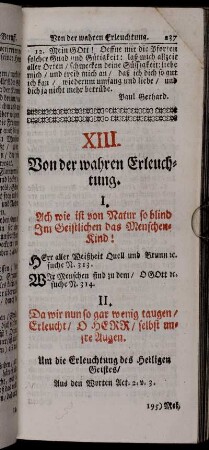 Von der wahren Erleuchtung. 237
12. Mein GOtt! Oefne mir die Pforten
solcher Gnad und Gütigkeit: laß mich allzeit
aller Orten/ schmecken deine Süßigkeit; liebe
mich/ und treib mich an/ daß ich dich so gut
ich kan/ wiederum umfang und liebe/ und
dich ja nicht mehr betrübe.
Paul Gerhard.
XIII.
Von der wahren Erleuch-
tung.
I.
Ach wie ist von Natur so blind
Im Geistlichen das Menschen-
Kind!
HErr aller Weißheit Quell und Brunn ꝛc.
suche N. 313.
WIr Menschen sind zu dem/ O GOtt ꝛc.
suche N. 314.
II.
Da wir nun so gar wenig taugen/
Erleucht/ O HERR/ selbst un-
sre Augen.
Um die Erleuchtung des Heiligen
Geistes/
Aus den Worten Act. 2. v. 3.
195) Mel.